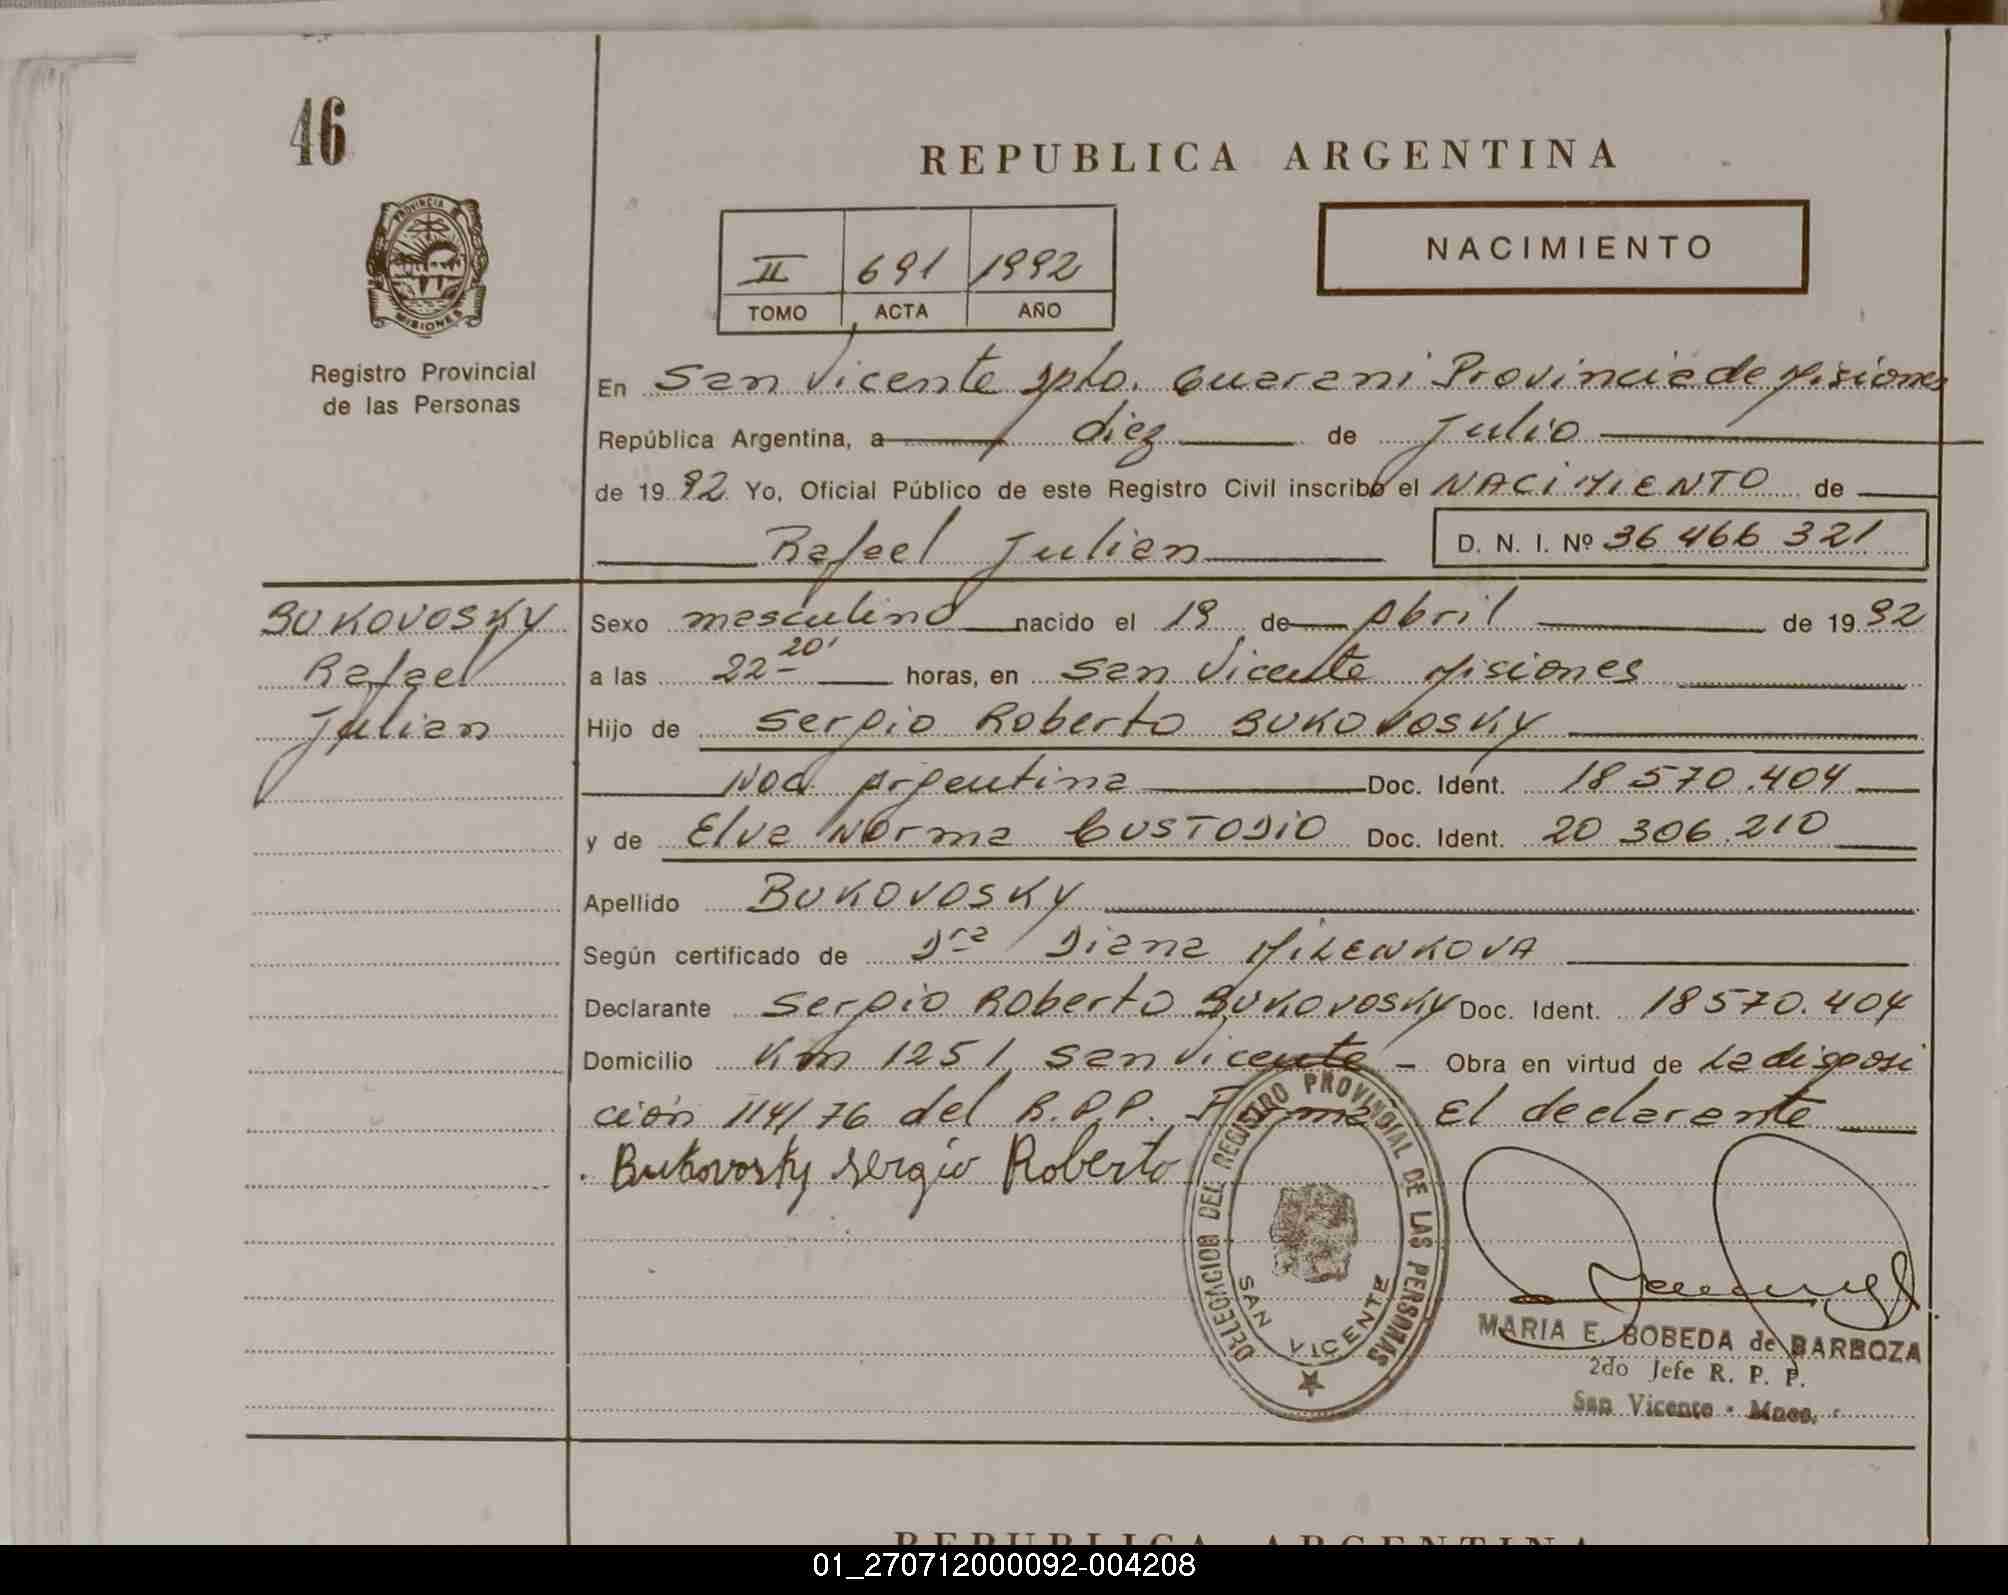 46
REPUBLICA ARGENTINA
PROVINCIA
MISIONES
Registro Provincial
de las Personas
II 691 1992
TOMO ACTA AÑO
NACIMIENTO
En San Vicente Dpto. Guarani Provincia de Misiones
República Argentina, a diez de Julio
de 1992 Yo, Oficial Público de este Registro Civil inscribo el NACIMIENTO de
Rafael Julian D. N. I. Nº 36 466 321
BUKOVOSKY
Rafael
Julian
Sexo masculino nacido el 19 de Abril de 1992
a las 22 20' horas, en San Vicente Misiones
Hijo de Sergio Roberto BUKOVOSKY
Nad Argentina Doc. Ident. 18 570.404
y de Elva Norma CUSTODIO Doc. Ident. 20 306.210
Apellido BUKOVOSKY
Según certificado de Dra Diana MILENKOVA
Declarante Sergio Roberto BUKOVOSKY Doc. Ident. 18570.404
Domicilio Km 1251 San Vicente - Obra en virtud de La disposi
ción 114/76 del R.P.P. Firma El declarante
Bukovosky Sergio Roberto
DELEGACION DEL REGISTRO PROVINCIAL DE LAS PERSONAS
SAN VICENTE
MARIA E. BOBEDA de BARBOZA
2do Jefe R. P. P.
San Vicente - Mnes.
REPUBLICA ARGENTINA
01_270712000092-004208